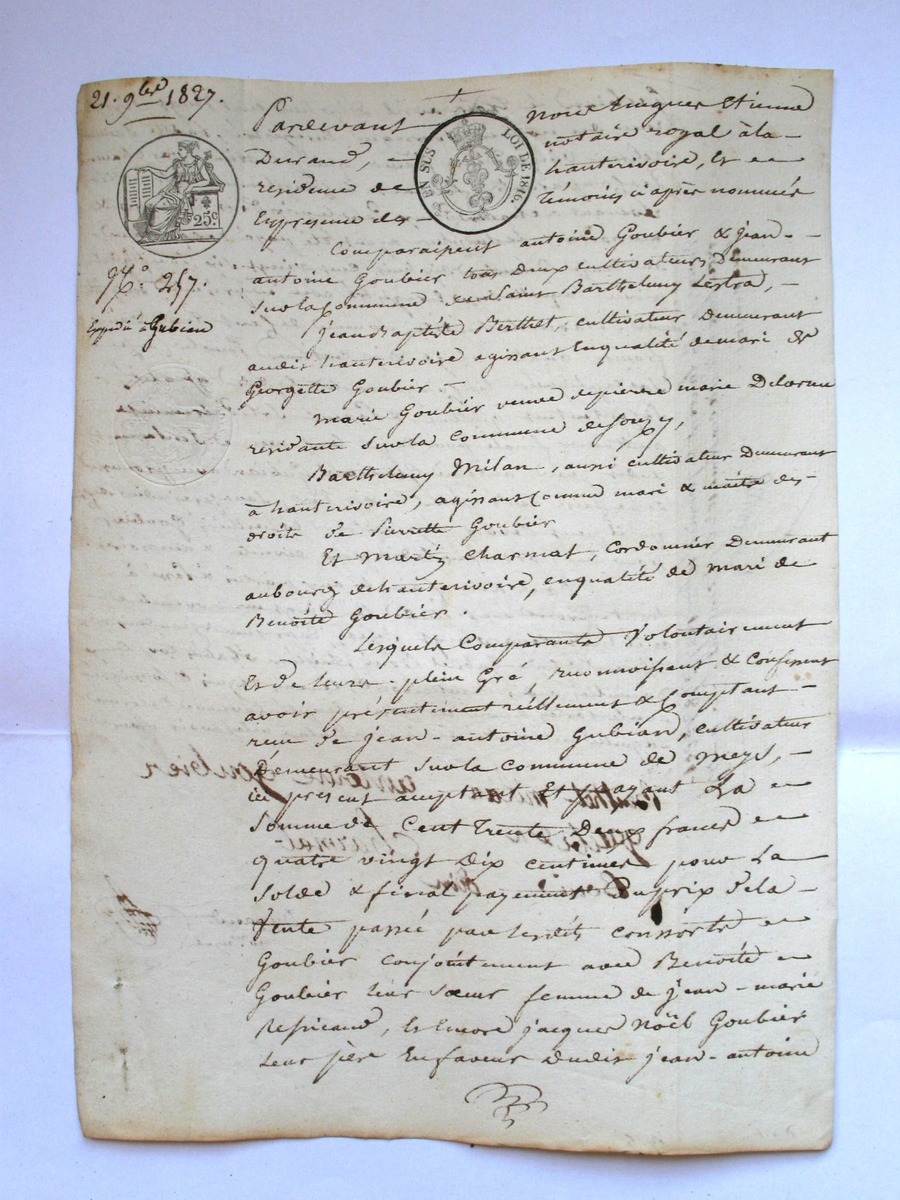 21. 9bre 1827.
25c
EN SUS LOI DE 1816.
No. 257.
Expédié à Gubian
Pardevant nous Auguste Etienne
Durand, notaire royal à la
résidence de hauterivoire, et en
présence des témoins ci après nommés
Comparaissent antoine Goubier & jean-
antoine Goubier tous deux cultivateurs Demeurant
sur la Commune de Saint Barthelemy Lestra,
jean Baptiste Berthet, cultivateur Demeurant
audit hauterivoire agissant En qualité de mari de
Georgette Goubier
marie Goubier veuve de pierre marie Delorme
résidante sur la Commune de Souzy,
Barthelemy Milan, aussi cultivateur Demeurant
à hauterivoire, agissant Comme mari & maître des
droits de Pierrette Goubier
Et Martin Charmat, Cordonnier Demeurant
au bourg de hauterivoire, en qualité de mari de
Benoite Goubier.
Lesquels Comparants Volontairement
Et de leurs plein Gré, reconnoissent & Confessent
avoir présentement réellement & Comptant
reçu de jean-antoine Gubian, cultivateur
Demeurant sur la Commune de meys,
ici présent acceptant Et payant La
Somme de Cent Trente Deux francs
quatre vingt Dix centimes pour La
Solde & final payement Du prix de la
Vente passée par lesdits consorts
Goubier conjointement avec Benoite
Goubier leur sœur femme de jean-marie
Et Encore jacques Noël Goubier
Leur père En faveur Dudit jean-antoine